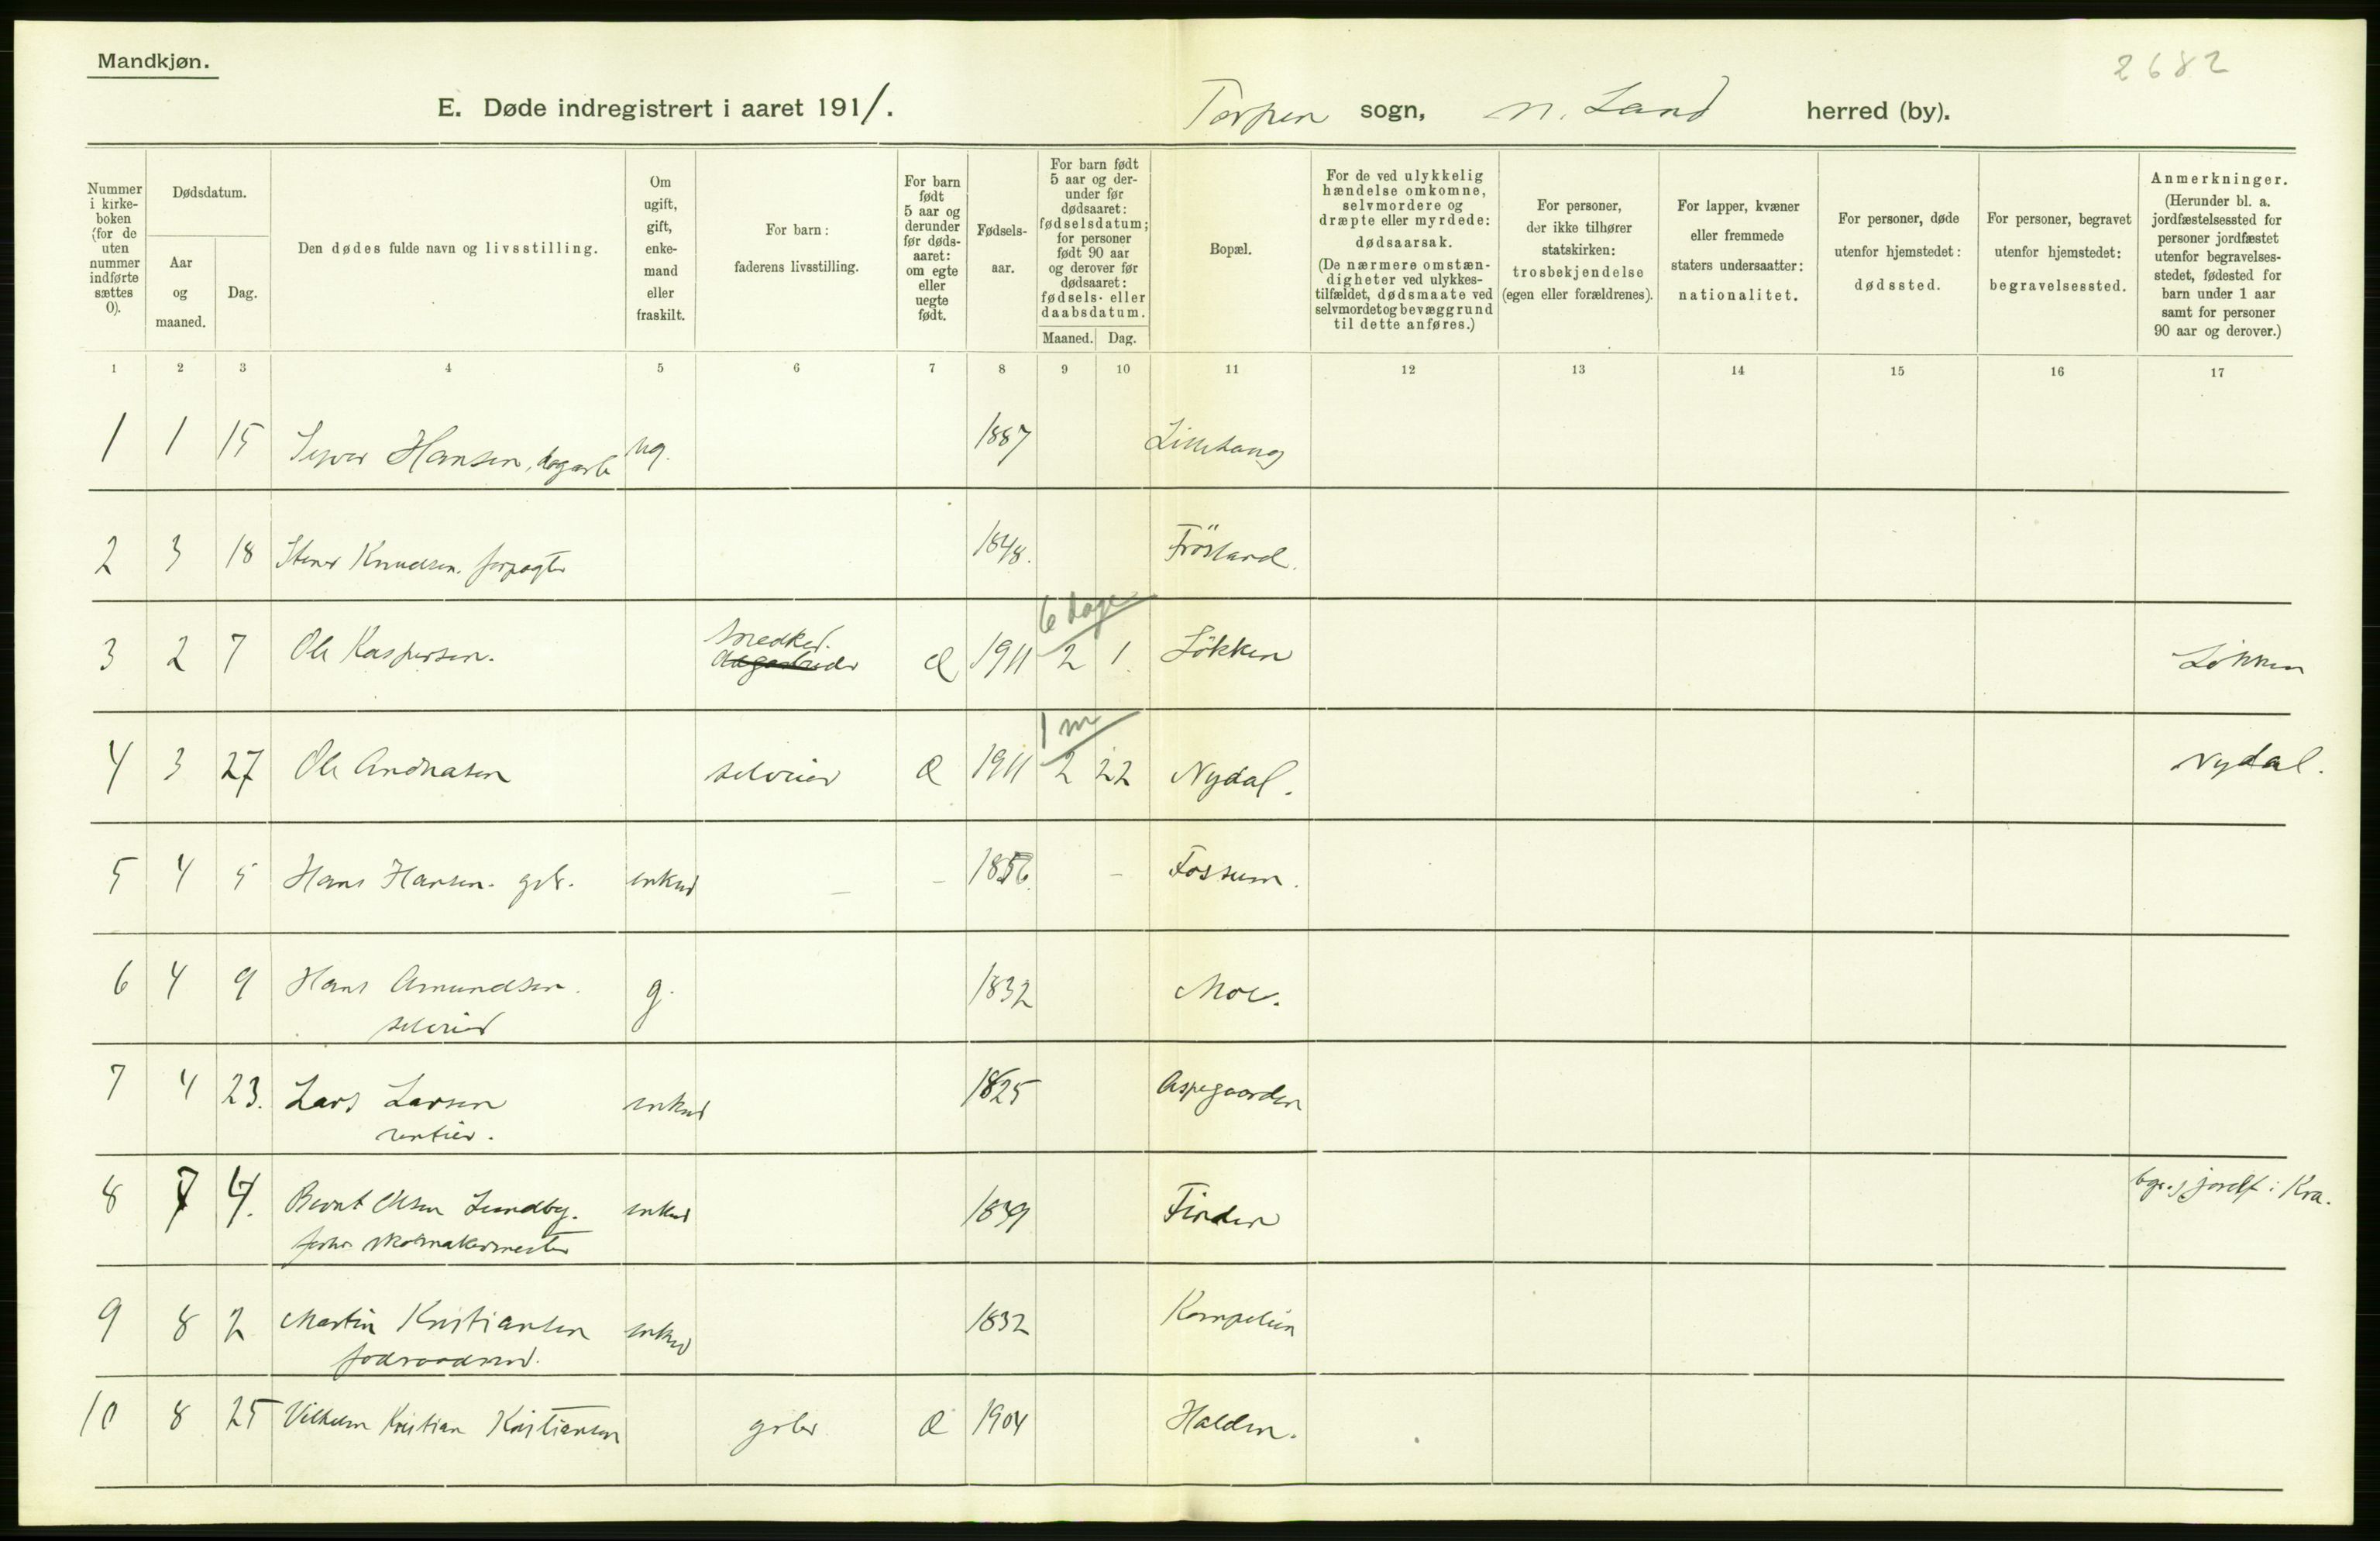 Mandkjøn.
2682
E. Døde indregistrert i aaret 1911.
Torpen sogn, N. Land herred (by).
Nummer i kirke-boken (for de uten nummer indførte sættes 0).
Dødsdatum.
Aar og maaned.
Dag.
Den dødes fulde navn og livsstilling.
Om ugift, gift, enke-mand eller fraskilt.
For barn: faderens livsstilling.
For barn født 5 aar og derunder før døds-aaret: om egte eller uegte født.
Fødsels-aar.
For barn født 5 aar og der-under før dødsaaret: fødselsdatum; for personer født 90 aar og derover før dødsaaret: fødsels- eller daabsdatum.
Maaned.
Dag.
Bopæl.
For de ved ulykkelig hændelse omkomne, selvmordere og dræpte eller myrdede: dødsaarsak. (De nærmere omstæn-digheter ved ulykkes-tilfældet, dødsmaate ved selvmordet og bevæggrund til dette anføres.)
For personer, der ikke tilhører statskirken: trosbekjendelse (egen eller forældrenes).
For lapper, kvæner eller fremmede staters undersaatter: nationalitet.
For personer, døde utenfor hjemstedet: dødssted.
For personer, begravet utenfor hjemstedet: begravelsessted.
Anmerkninger. (Herunder bl. a. jordfæstelsessted for personer jordfæstet utenfor begravelses-stedet, fødested for barn under 1 aar samt for personer 90 aar og derover.)
1 2 3 4 5 6 7 8 9 10 11 12 13 14 15 16 17
1 1 15 Syver Hansen, dagarb ug. 1887 Lillehaug
2 3 18 Stener Knudsen. forpagter 1848. Frösland.
6 dage
snedker.
3 2 7 Ole Kaspersen. dagarbeider E 1911 2 1. Lökken Lökken
1 m
4 3 27 Ole Andreasen selveier E 1911 2 22 Nydal. Nydal.
5 4 5 Hans Hansen. gbr. enkem - - 1856. - Fossum.
6 4 9 Hans Amundsen. g. 1832 Moe.
selveier
7 4 23. Lars Larsen enkem 1825 Aspegaarden
rentier.
8 7 4. Bernt Olsen Lundby. enkem 1839 Finden bgr. jordf. i Kra.
forhv. skomakermester
9 8 2 Martin Kristiansen enkem 1832 Kompelien
foderaadsmd.
10 8 25 Vilhelm Kristian Kristiansen gbr E 1904 Halden.